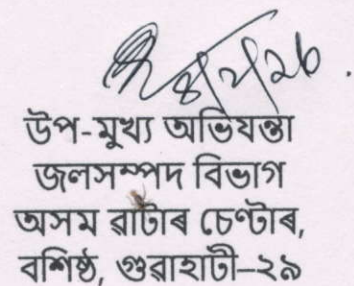 8/2/26
উপ-মুখ্য অভিযন্তা
জলসম্পদ বিভাগ
অসম ৱাটাৰ চেণ্টাৰ,
বশিষ্ঠ, গুৱাহাটী–২৯